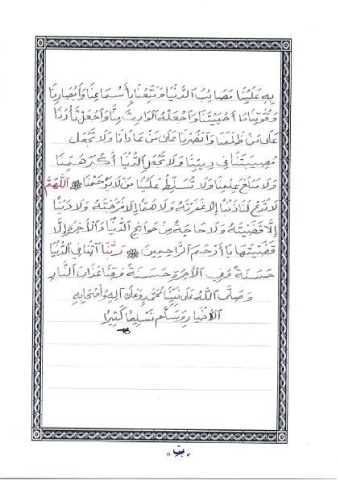 بِهِ عَلَيْنَا مَصَائِبَ الدُّنْيَا وَمَتِّعْنَا بِأَسْمَاعِنَا وَأَبْصَارِنَا
وَقُوَّتِنَا مَا أَحْيَيْتَنَا وَاجْعَلْهُ الْوَارِثَ مِنَّا وَاجْعَلْ ثَأْرَنَا
عَلَى مَنْ ظَلَمَنَا وَانْصُرْنَا عَلَى مَنْ عَادَانَا وَلَا تَجْعَلْ
مُصِيبَتَنَا فِي دِينِنَا وَلَا تَجْعَلِ الدُّنْيَا أَكْبَرَ هَمِّنَا
وَلَا مَبْلَغَ عِلْمِنَا وَلَا تُسَلِّطْ عَلَيْنَا مَنْ لَا يَرْحَمُنَا اَللَّهُمَّ
لَا تَدَعْ لَنَا ذَنْبًا إِلَّا غَفَرْتَهُ وَلَا هَمًّا إِلَّا فَرَّجْتَهُ وَلَا دَيْنًا
إِلَّا قَضَيْتَهُ وَلَا حَاجَةً مِنْ حَوَائِجِ الدُّنْيَا وَالْآخِرَةِ إِلَّا
قَضَيْتَهَا يَا أَرْحَمَ الرَّاحِمِينَ رَبَّنَا آتِنَا فِي الدُّنْيَا
حَسَنَةً وَفِي الْآخِرَةِ حَسَنَةً وَقِنَا عَذَابَ النَّارِ
وَصَلَّى اللَّهُ عَلَى نَبِيِّنَا مُحَمَّدٍ وَعَلَى آلِهِ وَأَصْحَابِهِ
الْأَخْيَارِ وَسَلَّمَ تَسْلِيمًا كَثِيرًا